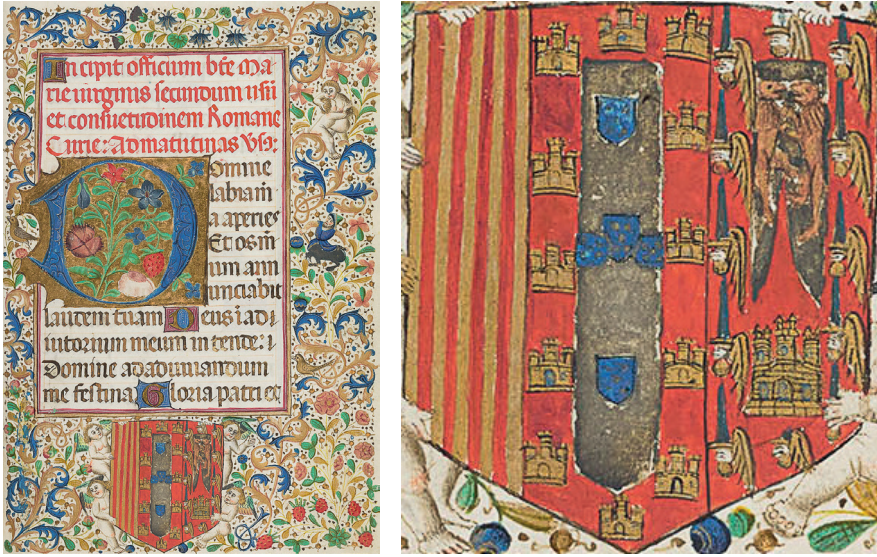 In cipit officium bte ma
rie uirginis secundum usũ
et consuetudinem Romane
Curie: Ad matutinas Vs:
Domine
labia m
a aperies
Et os m̃
um ann
unciabit
laudem tuam Deus i adi
iutorium meum in tende: i
Domine ad adiuuandum
me festina Gloria patri et